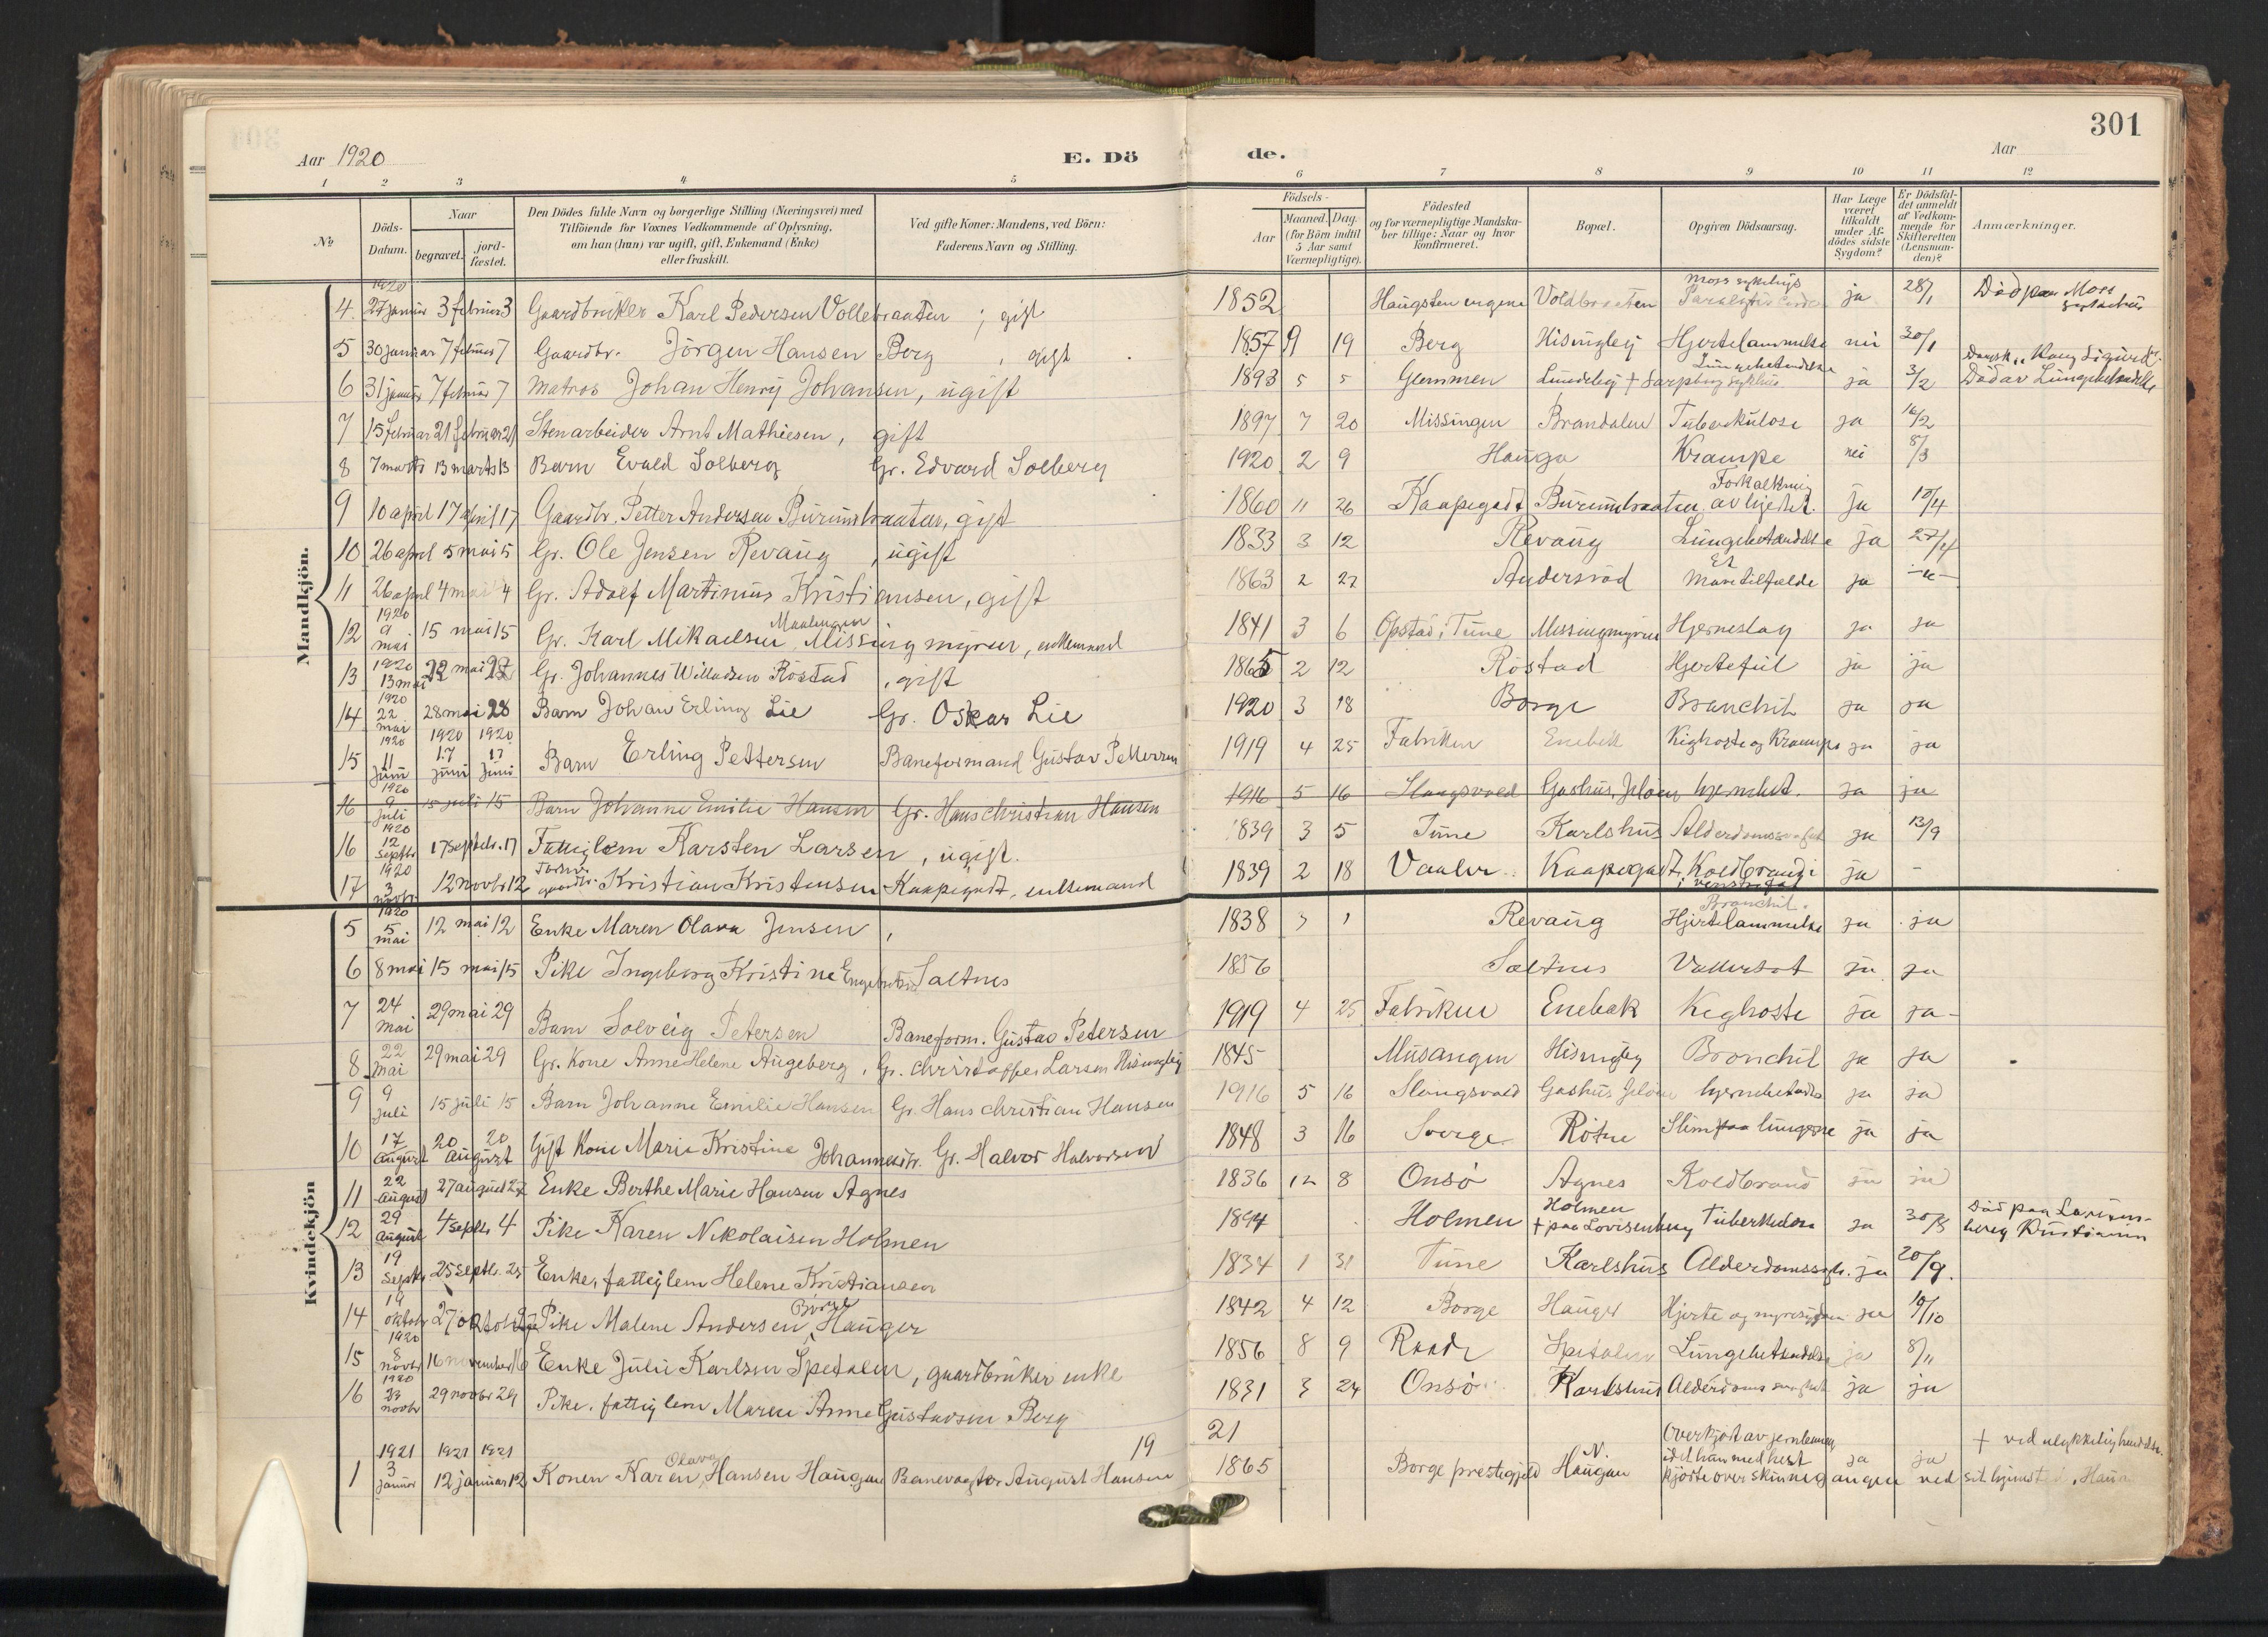 301
Aar 1920 E. Dö de. Aar
1 2 3 4 5 6 7 8 9 10 11 12
№ Döds-Datum. Naar begravet. jord-fæstet. Den Dödes fulde Navn og borgerlige Stilling (Næringsvei) med Tilföiende for Voxnes Vedkommende af Oplysning, om han (hun) var ugift, gift, Enkemand (Enke) eller fraskilt. Ved gifte Koner: Mandens, ved Börn: Faderens Navn og Stilling. Födsels- Aar Maaned. Dag. (for Börn indtil 5 Aar samt Værnepligtige). Födested og for værnepligtige Mandskaber tillige: Naar og hvor konfirmeret. Bopæl. Opgiven Dödsaarsag. Har Læge været tilkaldt under Afdödes sidste Sygdom? Er Dödsfaldet anmeldt af Vedkommende for Skifteretten (Lensmanden)? Anmærkninger.
Mandkjön.
1920
4 27 januar 3 februar 3 Gaardbruker Karl Pedersen Vollebraaten ; gift 1852 Haugsten Voldbraaten Moss sykehus ja 28/1 Död paa Moss
5 30 januar 7 februar 7 Gaardbr. Jörgen Hansen Berg , gift 1857 9 19 Berg Hisingby Hjertelammelse nei 30/1
6 31 januar 7 februar 7 Matros Johan Henry Johansen, ugift 1893 5 5 Glemmen Lundeby + Sarpsborg sykehus Lungebetændelse ja 3/2 Död av Lungebetændelse
7 15 februar 21 februar 21 Stenarbeider Arnt Mathiesen, gift 1897 7 20 Missingen Brandalen Tuberkulose ja 16/2
8 7 marts 13 marts 13 Barn Evald Solberg Gr. Edvard Solberg 1920 2 9 Hauga Krampe nei 8/3
9 10 april 17 april 17 Gaardbr. Petter Andersen Burumbraaten, gift 1860 11 26 Kaapegadt Burumbraaten Forkalkning av hjertet. ja 12/4
10 26 april 5 mai 5 Gr. Ole Jensen Revaug , ugift 1833 3 12 Revaug Lungebetændelse ja 27/4
11 26 april 4 mai 4 Gr. Adolf Martinius Kristiansen, gift 1863 2 27 Andersröd Et Mavetilfælde ja -"-
12 1920 9 mai 15 mai 15 Gr. Karl Mikaelsen Missingmyren, enkemand 1841 3 6 Opstad i Tune Missingmyren Hjerneslag ja ja
13 1920 13 mai 22 mai 22 Gr. Johannes Willadsen Röstad , gift 1865 2 12 Röstad Hjertefeil ja ja
14 1920 22 mai 28 mai 28 Barn Johan Erling Lie Gr. Oskar Lie 1920 3 18 Borge Bronchit ja ja
15 1920 11 juni 1920 17 juni 1920 17 juni Barn Erling Pettersen Baneformand Gustav Pettersen 1919 4 25 Fabriken Enebek Kighoste og Krampe ja ja
16 1920 9 juli 15 juli 15 Barn Johanne Emilie Hansen Gr. Hans Christian Hansen 1916 5 16 Slangsvold Gashus, Jelöen hjernebet. ja ja
16 1920 12 septbr 17 septbr. 17 Fattiglem Karsten Larsen, ugift. 1839 3 5 Tune Karlshus Alderdomssvaghet ja 13/9
17 1920 3 novbr 12 novbr 12 gaardbr. Kristian Kristensen Kaapegadt, enkemand 1839 2 18 Vaaler Kaapegadt Koldbrand i venstre fot ja -
Kvindekjön
5 1920 5 mai 12 mai 12 Enke Maren Olava Jensen , 1838 3 1 Revaug Bronchit. Hjertelammelse ja ja
6 8 mai 15 mai 15 Pike Ingeborg Kristine Saltnes 1856 Saltnes Vattersot ja ja
7 24 mai 29 mai 29 Barn Solveig Petersen Baneform. Gustav Petersen 1919 4 25 Fabriken Enebak Kighoste ja ja
8 22 mai 29 mai 29 Gr. Kone Anne Helene Augeberg, Gr. Christoffer Larsen Hisingby 1845 Musangen Hisingby Bronchit ja ja
9 9 juli 15 juli 15 Barn Johanne Emilie Hansen Gr. Hans Christian Hansen 1916 5 16 Slangsvold Gashus Jelöen hjernebetændelse ja ja
10 17 august 20 august 20 Gift Kone Marie Kristine Johannesdtr. Gr. Halvor Halvorsen 1848 3 16 Sverge Rötne Slim paa lungerne ja ja
11 22 august 27 august 27 Enke Berthe Marie Hansen Agnes 1836 12 8 Onsö Agnes Koldbrand ja ja
12 29 august 4 septbr 4 Pike Karen Nikolaisen Holmen 1894 Holmen Holmen + paa Lovisenberg Tuberkulose ja 30/8 Död paa Lovisenberg Kristiania
13 19 septbr 25 septbr. 25 Enke, fattiglem Helene Kristiansen 1834 1 31 Tune Karlshus Alderdomssvgh. ja 20/9.
14 19 oktobr 27 oktobr 27 Pike Malene Andersen Borge Hauger 1842 4 12 Borge Hauger Hjerte og nyresygdom ja 19/10
15 1920 8 novbr 16 november 16 Enke Julie Karlsen Spetalen, gaardbruker enke 1856 8 9 Raade Spetalen Lungebetændelse ja 8/11
16 1920 23 novbr 29 novbr 29 Pike, fattiglem Maren Anne Gustavsen Berg 1831 3 24 Onsö Karlshus Alderdoms svaghet ja ja
19 21
1 1921 3 januar 1921 12 januar 1921 12 Konen Karen Olava Hansen Haugan Banevogter August Hansen 1865 Borge prestegjeld N. Haugan Overkjört av jernbanen, idet han med hest kjörte over skinnegangen ved sit hjemsted, Haugan ja ja + ved ulykkelig hændelse